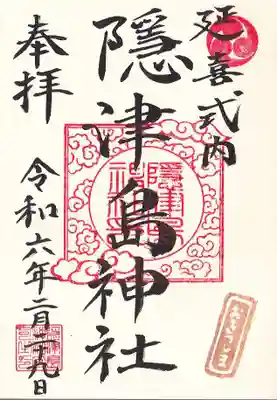 延喜式内
隠津島神社
奉拝
令和六年二月二十九日